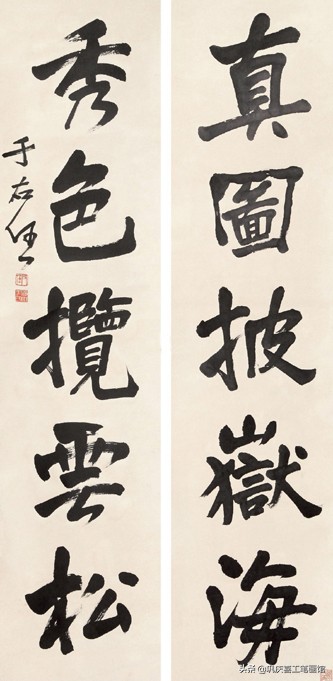 真圖披嶽海
秀色攬雲松
于右任
头条@巩庆喜工笔画馆